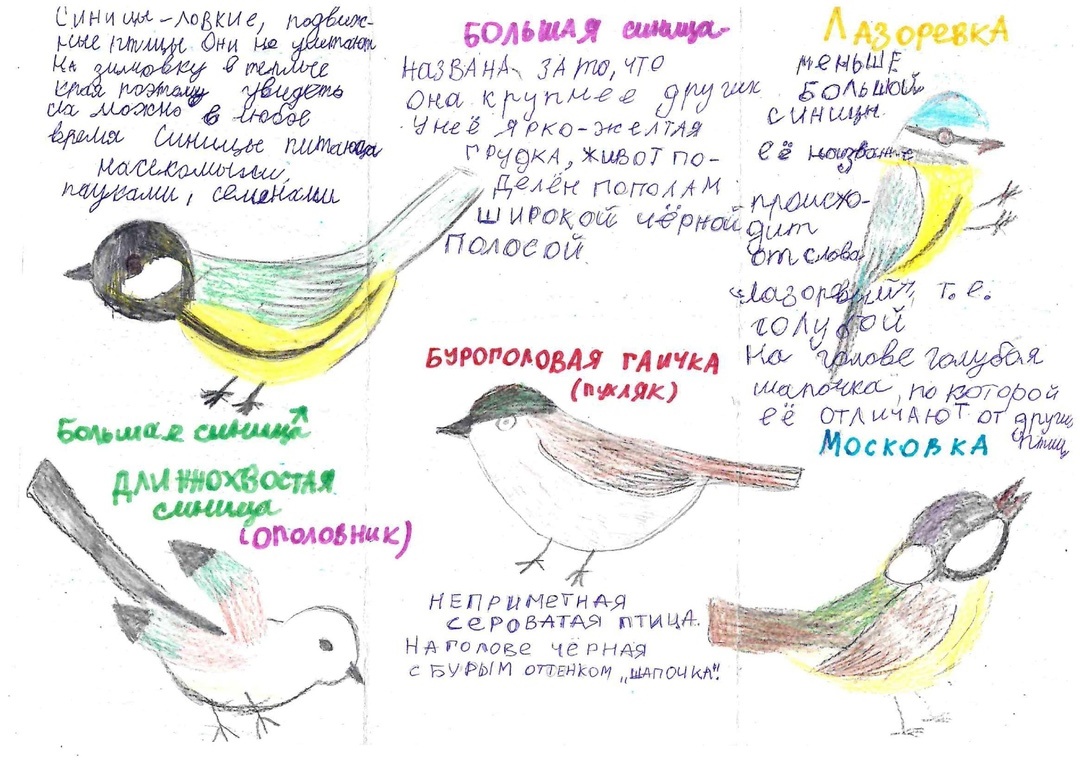 Синицы-ловкие, подвиж-
ные птицы. Они не улетают
на зимовку в теплые
края поэтому увидеть
их можно в любое
время Синицы питаются
насекомыми,
пауками, семенами
БОЛЬШАЯ синица-
НАЗВАНА ЗА ТО, ЧТО
Она крупнее других
У неё ЯРКО-ЖЕЛТАЯ
ГРУДКА, ЖИВОТ ПО-
ДЕЛЁН ПОПОЛАМ
ШИРОКОЙ ЧЁРНОЙ
ПОЛОСОЙ
ЛАЗОРЕВКА
МЕНЬШЕ
БОЛЬШОЙ
СИНИЦЫ.
её название
происхо-
дит
от слова
"лазоревый", т.е.
ГОЛУБОЙ
На голове голубая
шапочка, по которой
её ОТЛИЧАЮТ ОТ других
птиц
Большая синица
БУРОПОЛОВАЯ ГАИЧКА
(ПУХЛЯК)
НЕПРИМЕТНАЯ
СЕРОВАТАЯ ПТИЦА.
НА ГОЛОВЕ ЧЁРНАЯ
С БУРЫМ ОТТЕНКОМ „ШАПОЧКА".
МОСКОВКА
ДЛИННОХВОСТАЯ
синица
(ОПОЛОВНИК)